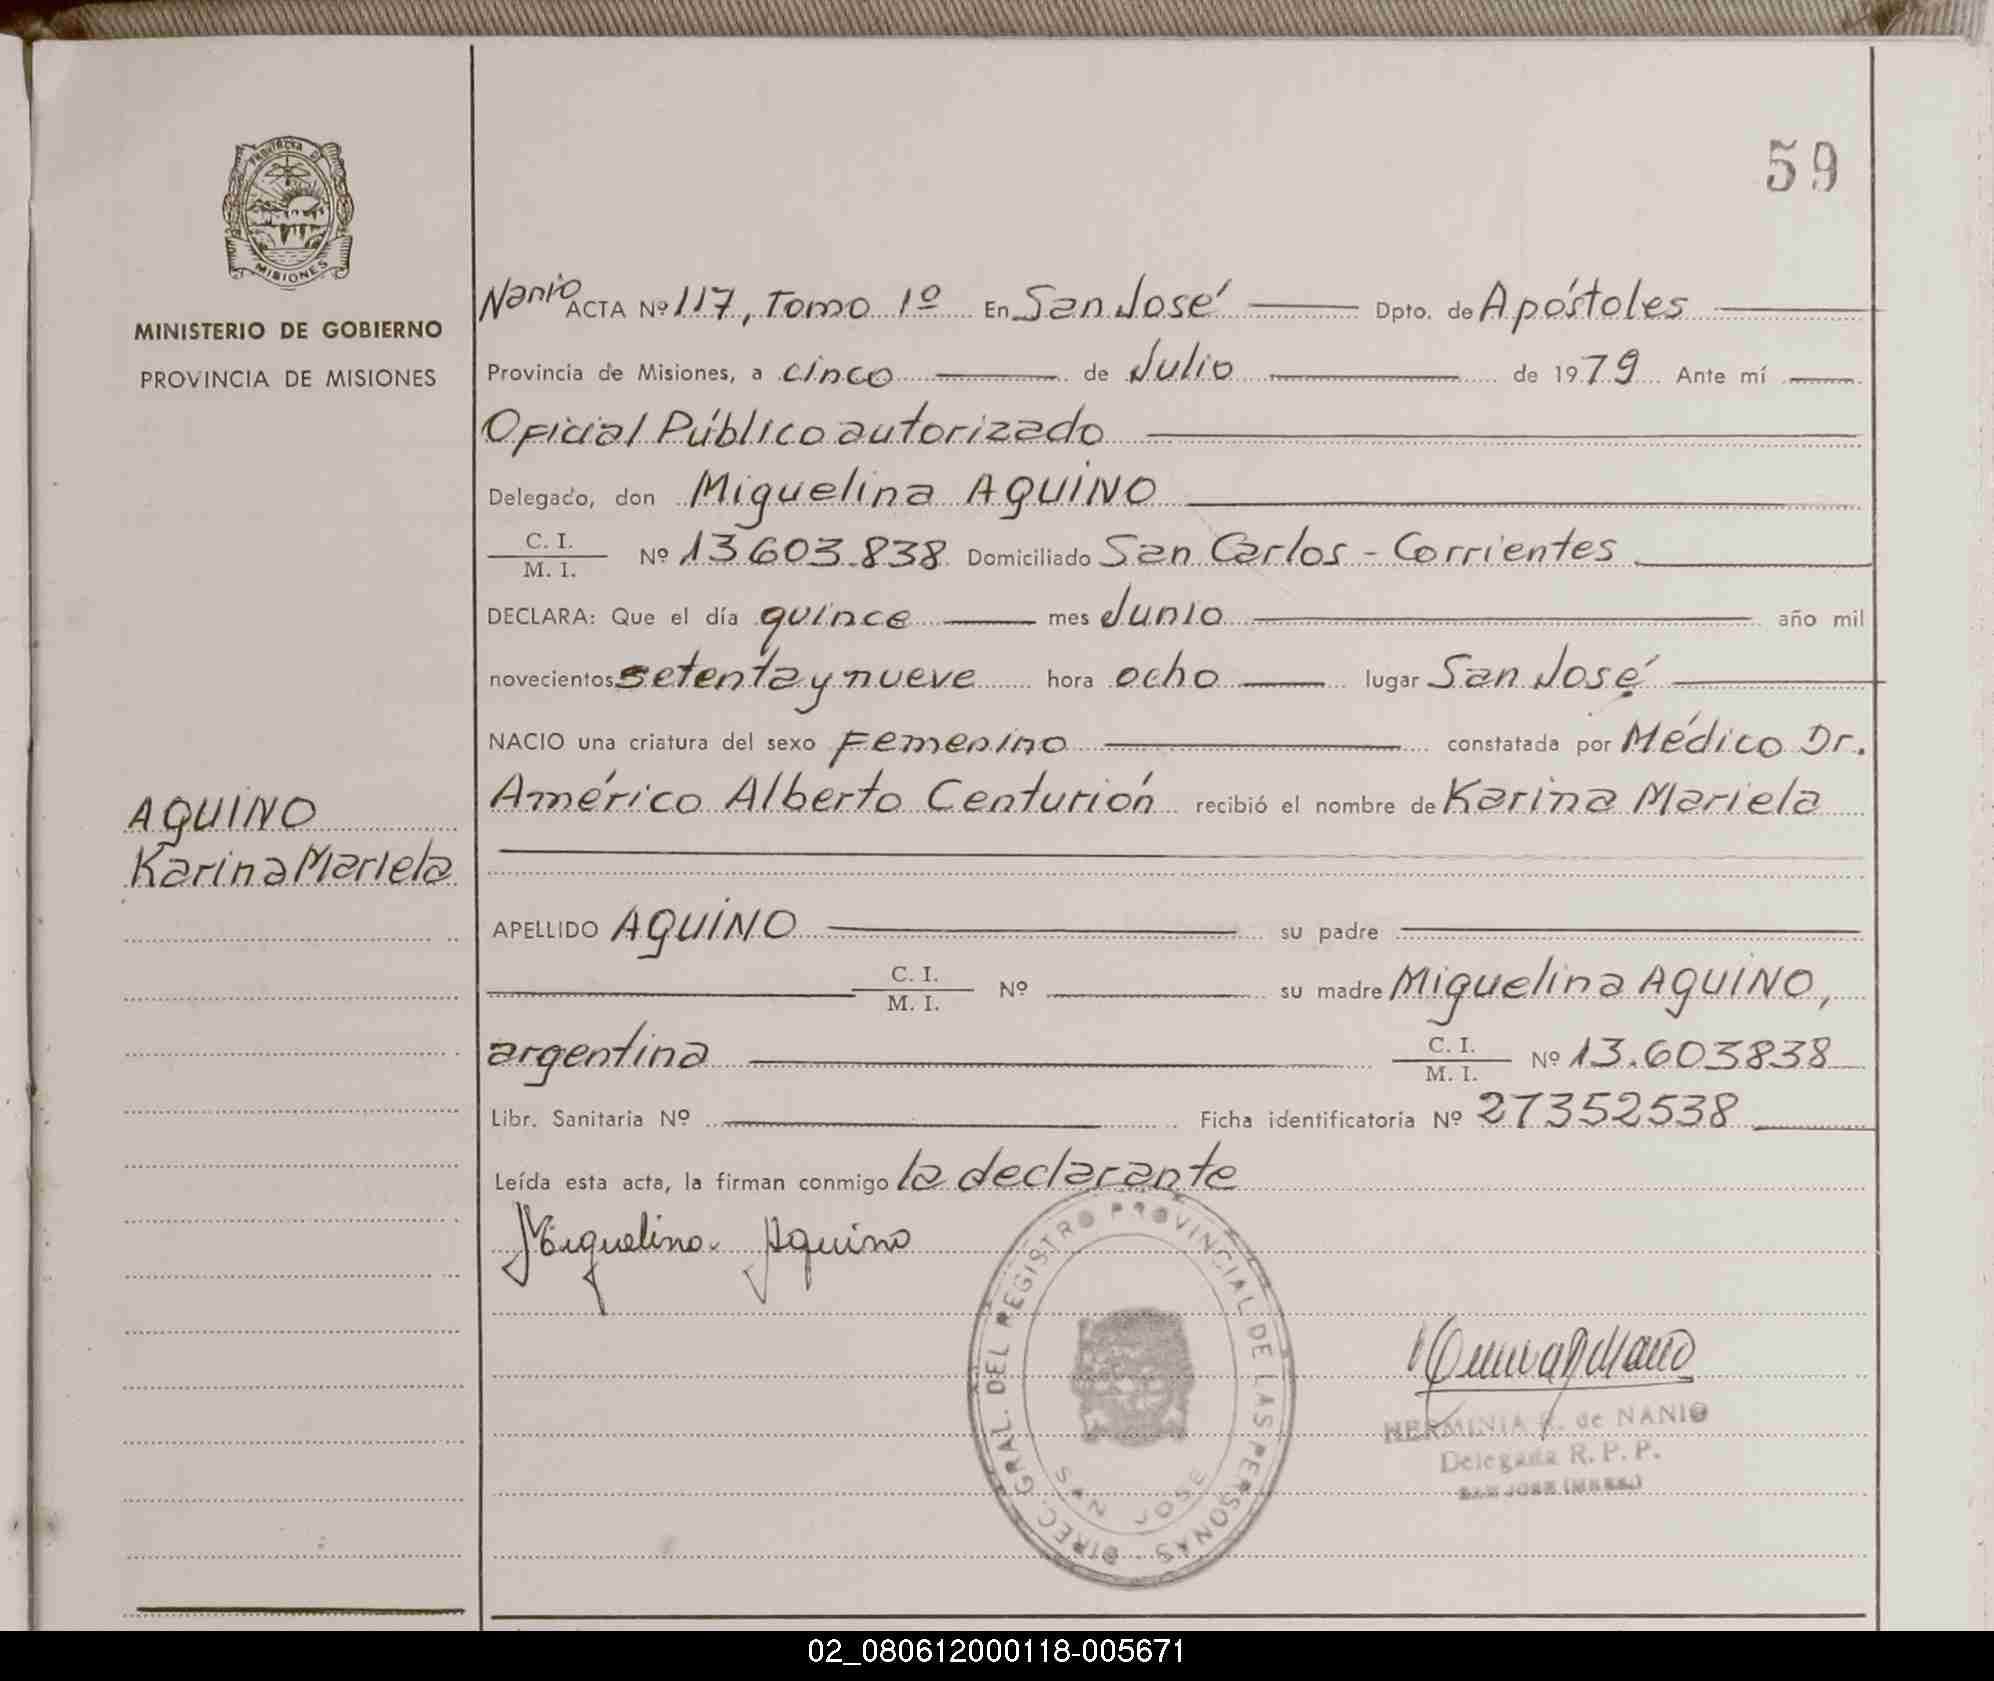 PROVINCIA DE
MISIONES
MINISTERIO DE GOBIERNO
PROVINCIA DE MISIONES
AQUINO
Karina Mariela
59
Nanio ACTA Nº 117, Tomo 1º En San José Dpto. de Apóstoles
Provincia de Misiones, a cinco de Julio de 1979 Ante mí
Oficial Público autorizado
Delegado, don Miguelina AQUINO
C. I.
M. I. Nº 13603.838 Domiciliado San Carlos - Corrientes
DECLARA: Que el día quince mes Junio año mil
novecientos setenta y nueve hora ocho lugar San José
NACIO una criatura del sexo Femenino constatada por Médico Dr.
Américo Alberto Centurión recibió el nombre de Karina Mariela
APELLIDO AQUINO su padre
C. I.
M. I. Nº su madre Miguelina AQUINO,
argentina C. I.
M. I. Nº 13.603838
Libr. Sanitaria Nº Ficha identificatoria Nº 27352538
Leída esta acta, la firman conmigo la declarante
Miguelina Aquino
DIREC. GRAL. DEL REGISTRO PROVINCIAL DE LAS PERSONAS -
SAN JOSE
HERMINIA de NANIO
Delegada R. P. P.
SAN JOSE (MNES.)
02_080612000118-005671